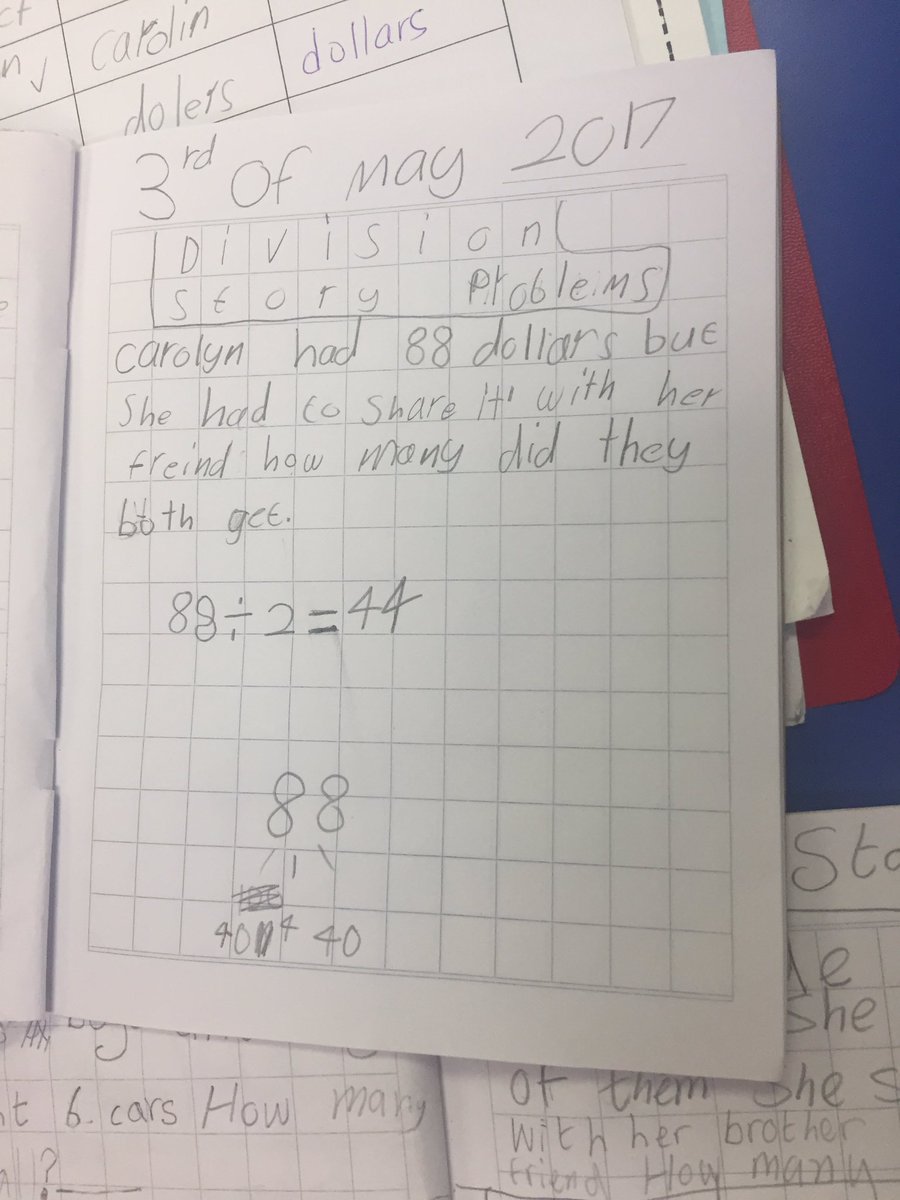 carolin
dollars
dolers
3rd Of may 2017
Division
Story Problems
carolyn had 88 dollars but
She had to share it with her
freind how many did they
both get.
88÷2=44
88
40 4 40
6. cars How many
?
she
of them She
with her brother
friend How many